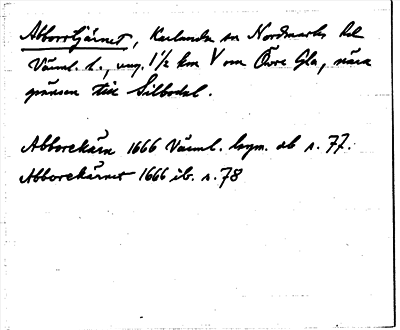 Abborrtjärnet, Karlanda sn Nordmarks hd
Värml. l., ung. 1 1/2 km V om Övre Gla, nära
gränsen till Silbodal.
Abborekärn 1666 Värml. lsym. ab s. 77.
Abborekärnet 1666 ib. s. 78